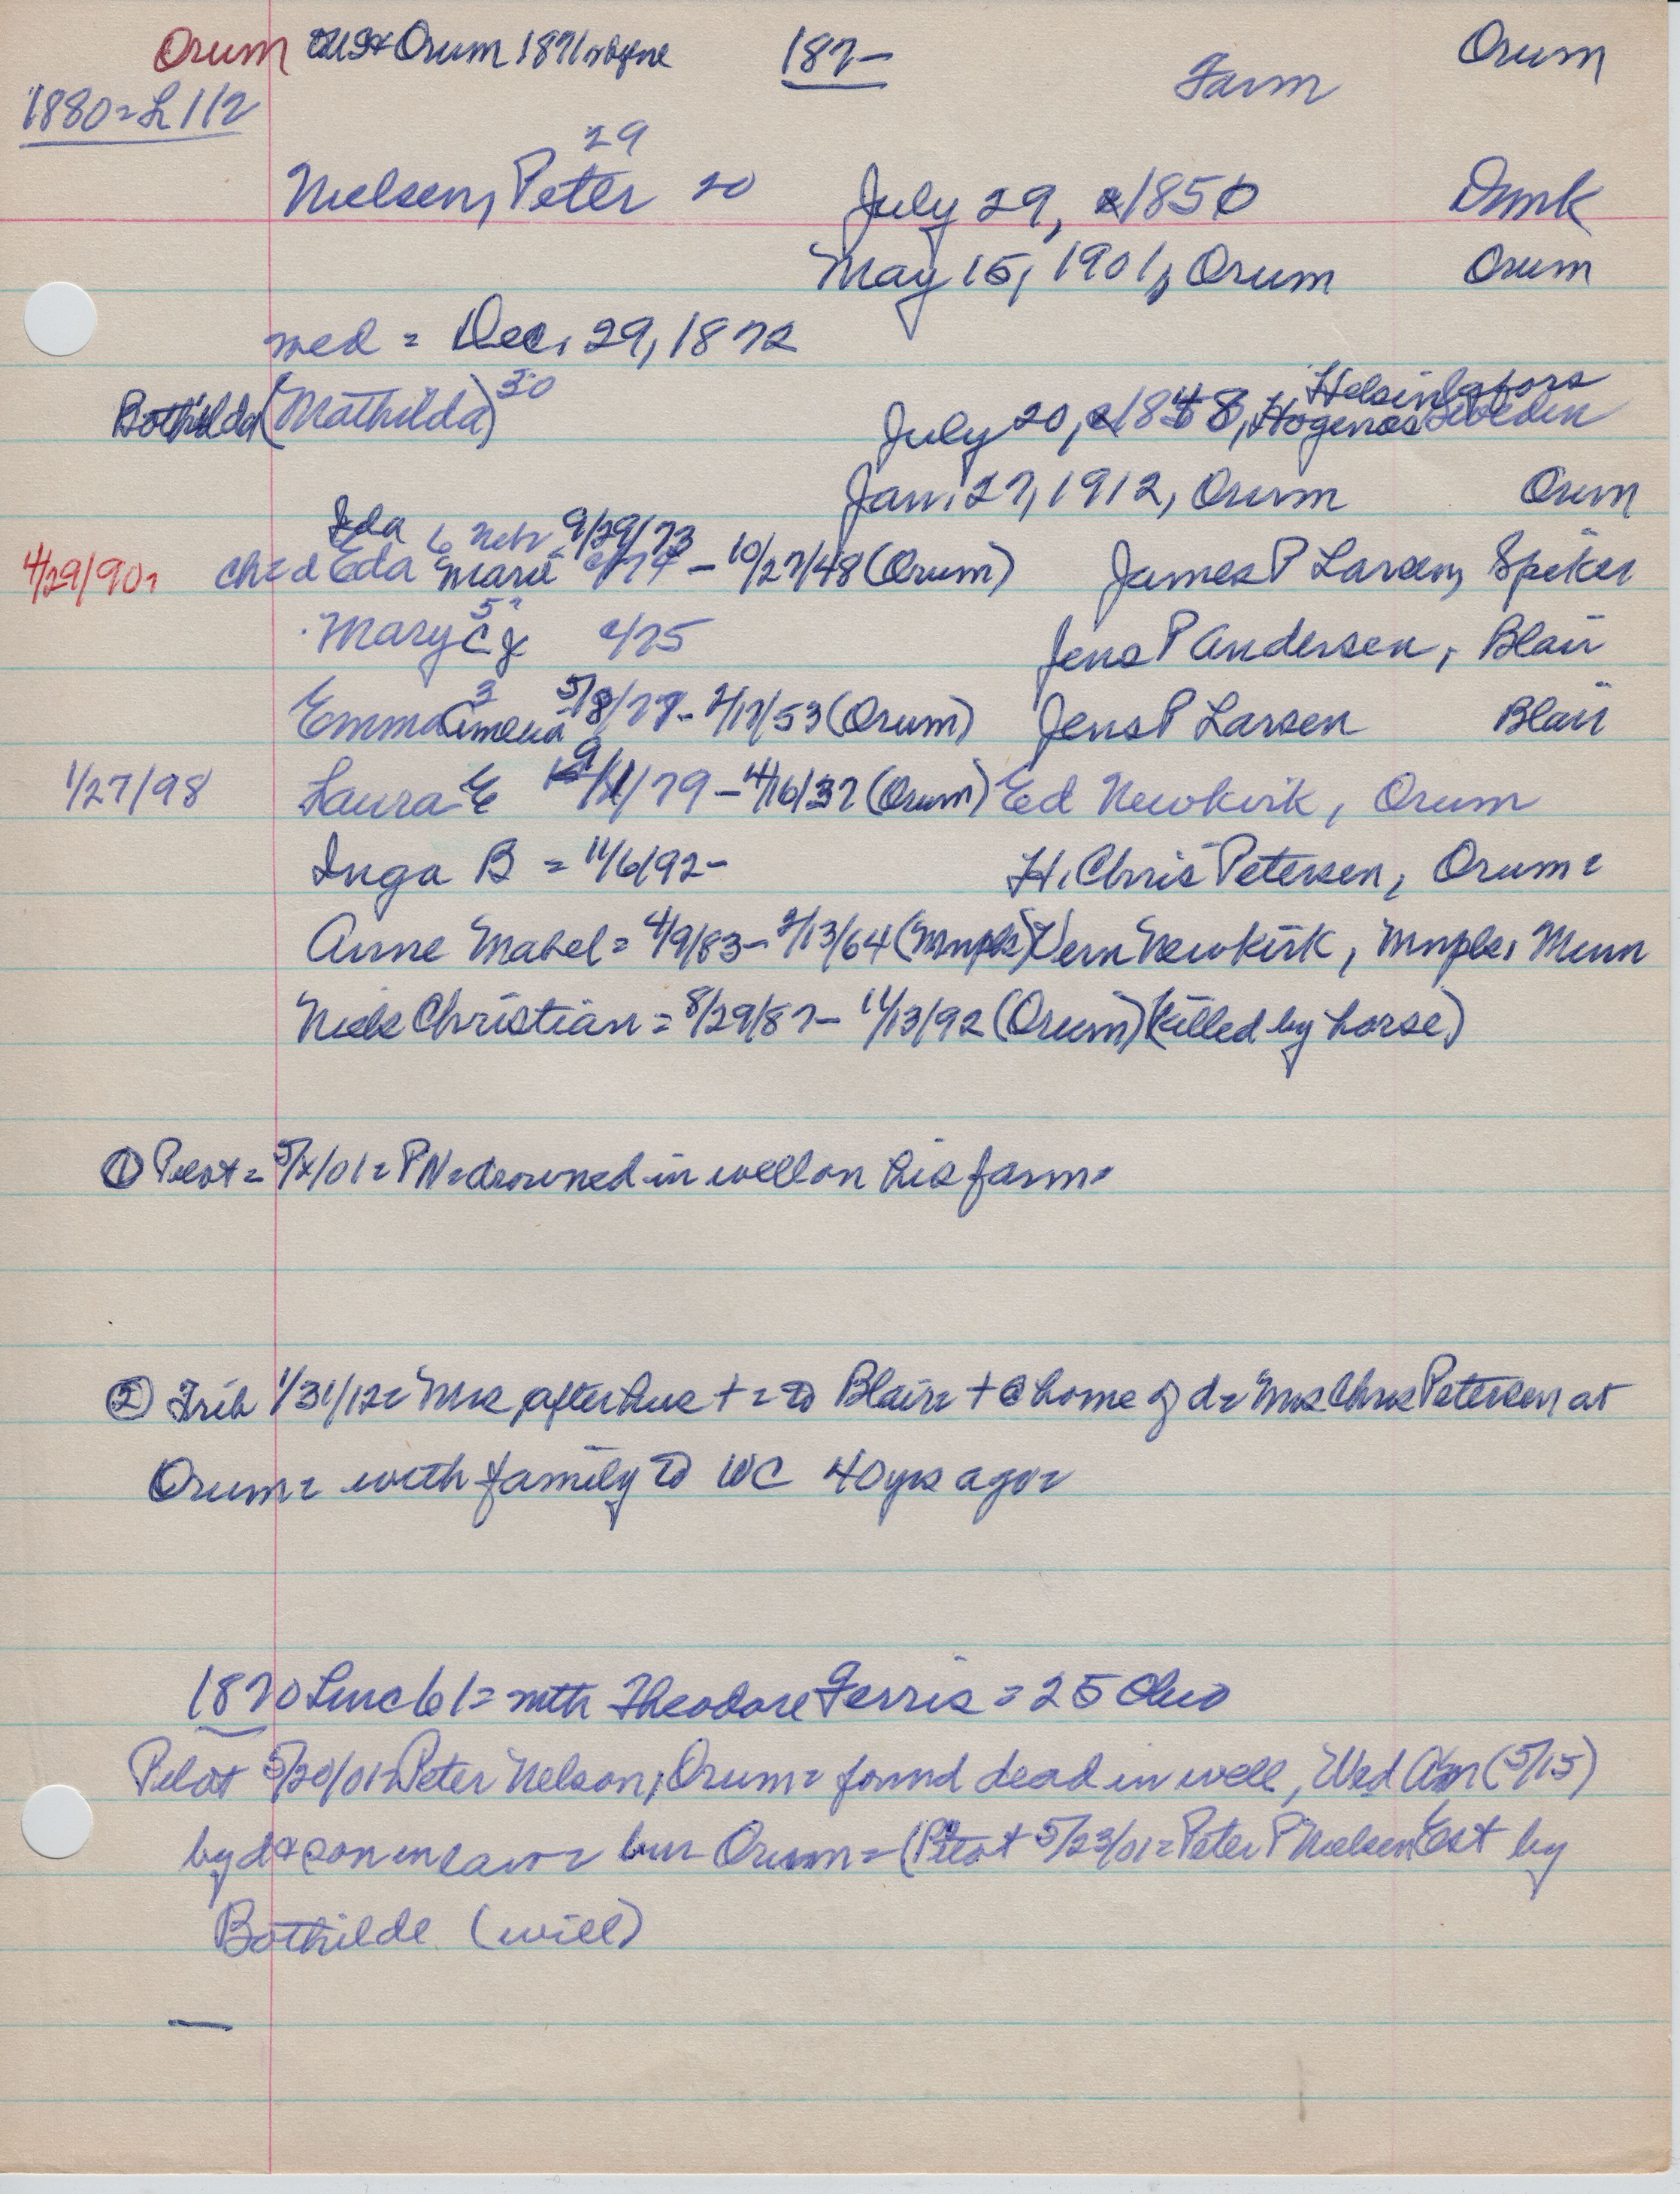 Orum Orum 1871 187- Farm Orum
1880=L112
29
Nielsen, Peter 20 July 29, 1850 Dmk
May 15, 1901, Orum Orum
med = Dec. 29, 1872
Bothilda (Mathilda) 30 July 20, c1848, Hogenas Helsingfors Sweden
Jan. 27, 1912, Orum Orum
Ida 6 Nebr 9/29/73
4/29/90= ch=d Eda Marie c/74 - 10/27/48 (Orum) James P Larsen, Spiker
5?
Mary C c/75 Jens P Andersen, Blair
3
Emma 5/8/77- 2/17/53 (Orum) Jens P Larsen Blair
1/27/98 Laura E 9/1/79 - 4/16/37 (Orum) Ed Newkirk, Orum
Inga B = 11/6/92- H. Chris Petersen, Orum=
Anne Mabel = 4/9/83- 2/13/64 (Mnpls) Vern Newkirk, Mnpls, Minn
Niels Christian = 8/29/87- 11/13/92 (Orum) (killed by horse)
① Pilot = 5/x/01 = PN = drowned in well on his farm=
② Trib 1/31/12= Mrs, after hus + = to Blair= + @ home of d= Mrs Chris Petersen at
Orum= with family to WC 40 yrs ago=
1870 Linc 61= mth Theodore Ferris = 25 Ohio
Pilot 5/20/01= Peter Nelson, Orum= found dead in well, Wed Am (5/15)
by d & son in law= bur Orum = (Pilot 5/23/01= Peter P Nielsen Est by
Bothilde (will)
—